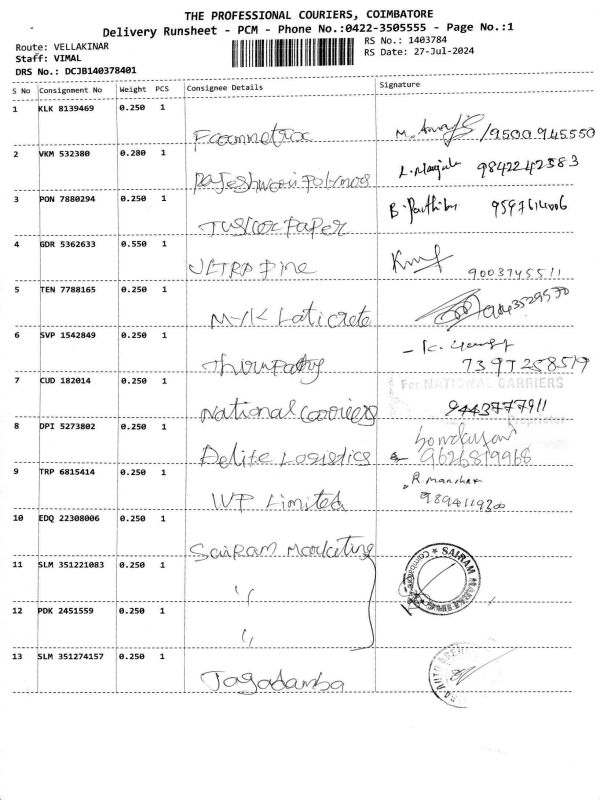 THE PROFESSIONAL COURIERS, COIMBATORE
Delivery Runsheet - PCM - Phone No.:0422-3505555 - Page No.:1
Route: VELLAKINAR
RS No.: 1403784
Staff: VIMAL
RS Date: 27-Jul-2024
DRS No.: DCJB140378401
S No Consignment No Weight PCS Consignee Details Signature
1 KLK 8139469 0.250 1
Ecommetrix /9500945550
2 VKM 532380 0.280 1
Rajeshwari Polymers 9842242383
3 PON 7880294 0.250 1
Paper B. Parthiban 9597614006
4 GDR 5362633 0.550 1
ULTRA Fine 9003745511
5 TEN 7788165 0.250 1
M-K Laticrete
6 SVP 1542849 0.250 1
Thirupathy 7397258519
7 CUD 182014 0.250 1
For NATIONAL CARRIERS
National Carriers 9443777911
Proprietor
8 DPI 5273802 0.250 1
Delite Logistics 9626819968
9 TRP 6815414 0.250 1
WP Limited R. Manohar 9894119300
10 EDQ 22308006 0.250 1
SaiRam Marketing
11 SLM 351221083 0.250 1
"
SAIRAM MARKETING
Coimbatore
12 PDK 2451559 0.250 1
"
13 SLM 351274157 0.250 1
Jagadamba